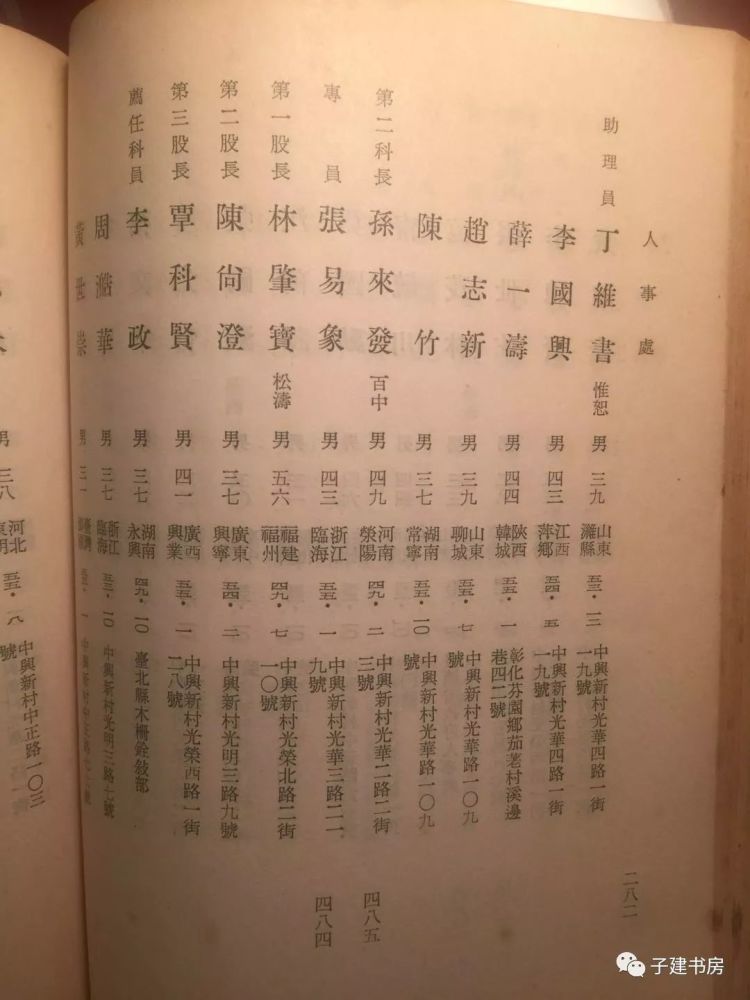 人事處
助理員 丁維書 惟恕 男 三九 山東濰縣 五三・一二 中興新村光華四路一街一九號
李國興 男 四三 江西萍鄉 五四・五 中興新村光華四路一街一九號
薛一濤 男 四四 陝西韓城 五五・一 彰化芬園鄉茄荖村溪邊巷四二號
趙志新 男 三九 山東聊城 五五・七 中興新村光華路一〇九號
陳竹 男 三七 湖南常寧 五五・一〇 中興新村光華路一〇九號
第二科長 孫來發 百中 男 四九 河南滎陽 四九・二 中興新村光華二路二街三號 四八五
專員 張易象 男 四三 浙江臨海 五五・一 中興新村光華三路二二九號 四八四
第一股長 林肇寶 松濤 男 五六 福建福州 四九・七 中興新村光榮北路二街一〇號
第二股長 陳尙澄 男 三七 廣東興寧 五四・二 中興新村光明三路九號
第三股長 覃科賢 男 四一 廣西興業 五五・一 中興新村光榮西路一街二八號
薦任科員 李政 男 三七 湖南永興 四九・一〇 臺北縣木柵銓敍部
周華 男 三七 浙江臨海 五三・一〇 中興新村光明三路七號
黃世崇 男 三一 臺灣 五五・一 中興新村中正路
二八二
男 三八 河北東明 五五・八 中興新村中正路一〇三號
子建书房